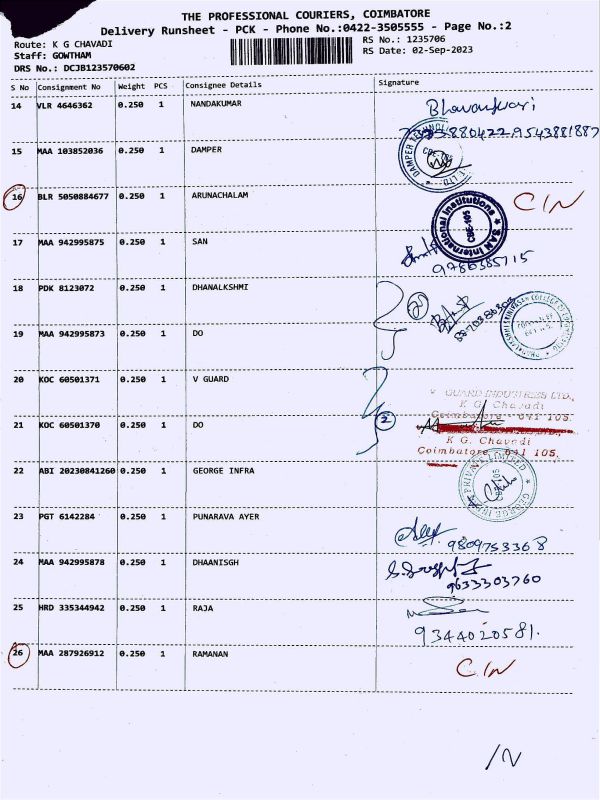 THE PROFESSIONAL COURIERS, COIMBATORE
Delivery Runsheet - PCK - Phone No.:0422-3505555 - Page No.:2
Route: K G CHAVADI
RS No.: 1235706
Staff: GOWTHAM
RS Date: 02-Sep-2023
DRS No.: DCJB123570602
S No Consignment No Weight PCS Consignee Details Signature
14 VLR 4646362 0.250 1 NANDAKUMAR
9543881887
15 MAA 103852036 0.250 1 DAMPER
16 BLR 5050884677 0.250 1 ARUNACHALAM C/N
SAN International Institutions
CBE-105
17 MAA 942995875 0.250 1 SAN
18 PDK 8123072 0.250 1 DHANALKSHMI
19 MAA 942995873 0.250 1 DO
20 KOC 60501371 0.250 1 V GUARD
V GUARD INDUSTRIES LTD.,
K G. Chavadi
Coimbatore - 641 105.
21 KOC 60501370 0.250 1 DO 2
K G. Chavadi
Coimbatore - 641 105.
22 ABI 20230841260 0.250 1 GEORGE INFRA
GEORGE INFRA PRIVATE LIMITED
23 PGT 6142284 0.250 1 PUNARAVA AYER
9809753368
24 MAA 942995878 0.250 1 DHAANISGH
9633303760
25 HRD 335344942 0.250 1 RAJA
9344020581.
26 MAA 287926912 0.250 1 RAMANAN C/N
/N